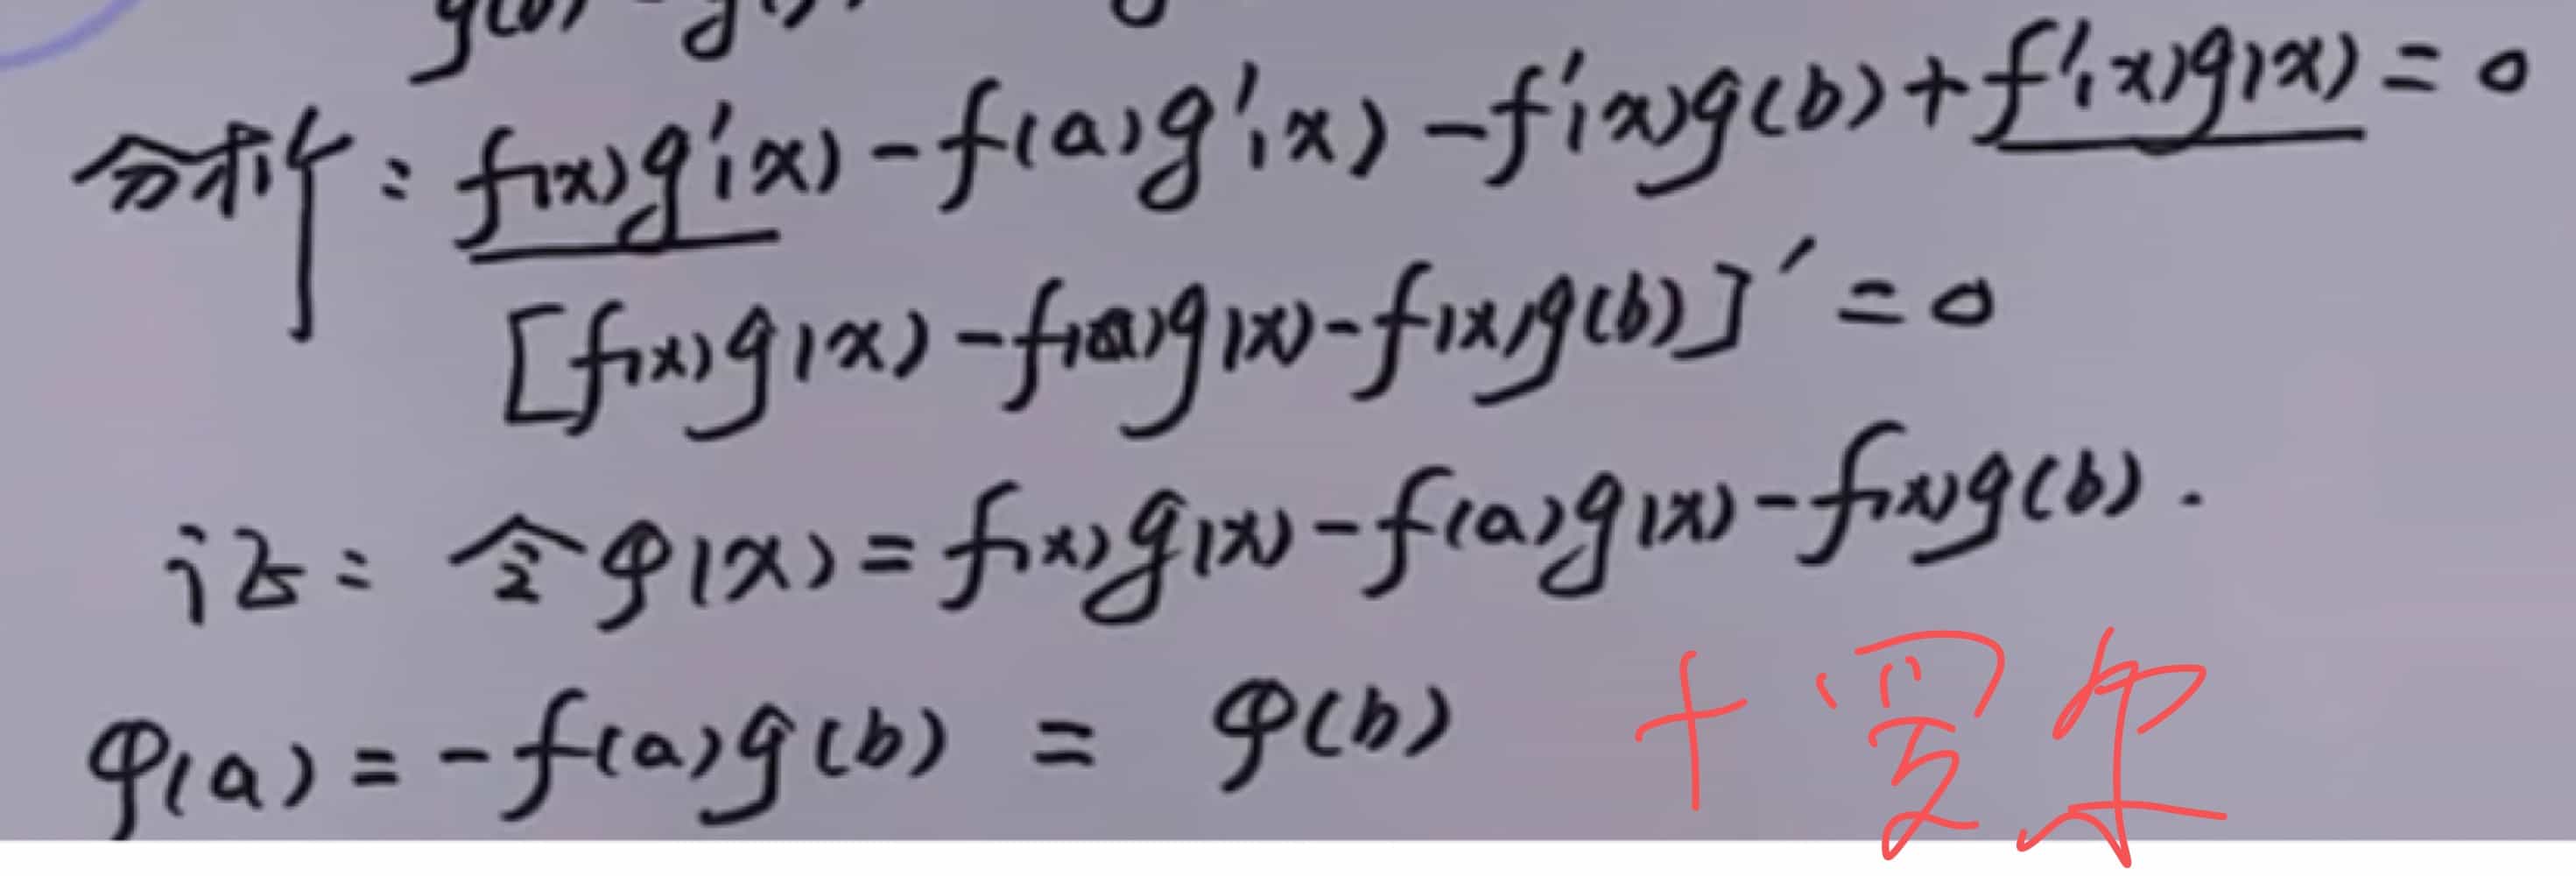 分析: f(x)g'(x) - f(a)g'(x) - f'(x)g(b) + f'(x)g(x) = 0
[f(x)g(x) - f(a)g(x) - f(x)g(b)]' = 0
证: 令φ(x) = f(x)g(x) - f(a)g(x) - f(x)g(b).
φ(a) = -f(a)g(b) = φ(b)
+